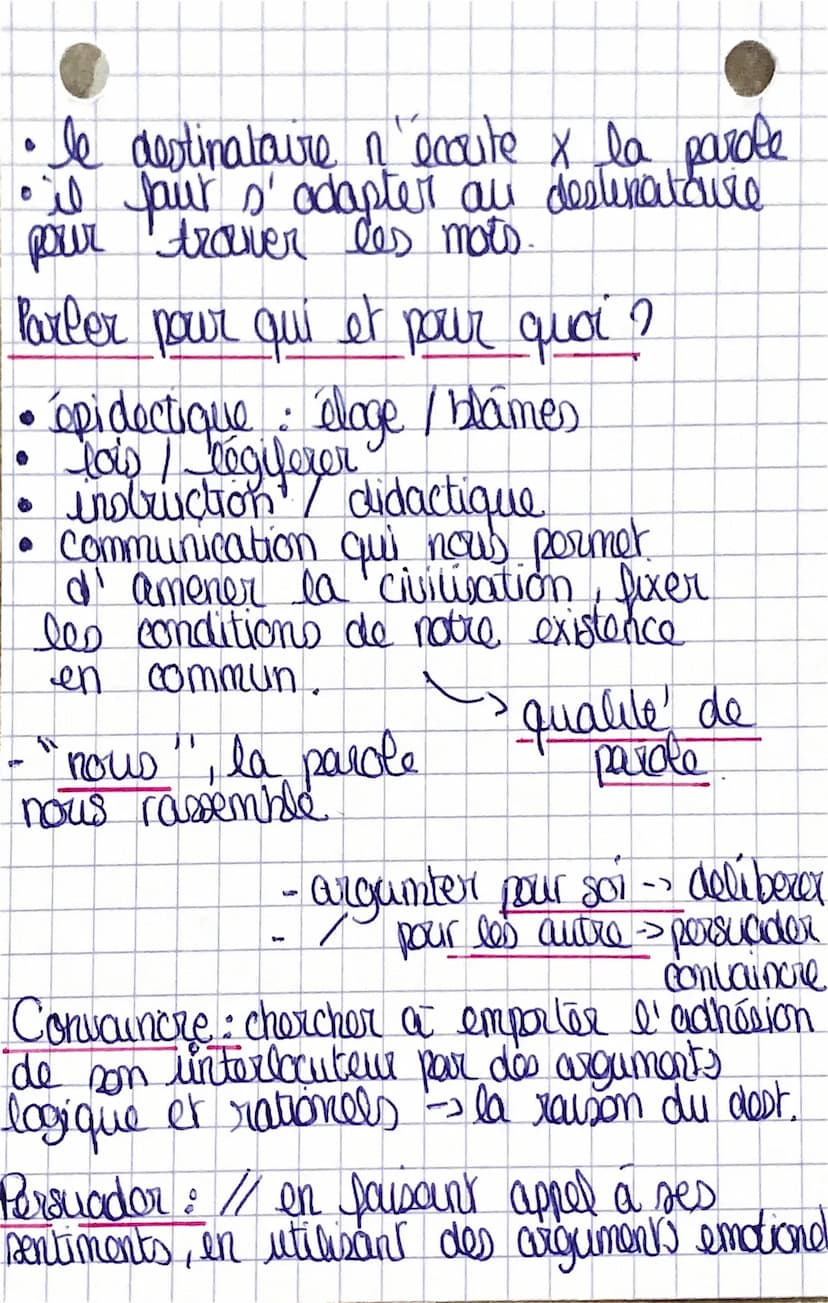 • le destinataire n'écoute x la parole
• il faut s'adapter au destinataire
pour trouver les mots.
Parler pour qui et pour quoi ?
• épidectique : éloge / blâmes
• lois / légiferer
• instruction / didactique
• communication qui nous permet
d'amener la civilisation, fixer
les conditions de notre existence
en commun.
→ qualité de
parole.
- "nous", la parole
nous rassemble
- argumter pour soi -> deliberer
- / pour les autre -> persuader
convaincre
Convaincre : chercher à emporter l'adhésion
de son interlocuteur par des arguments
logique et rationels -> la raison du dest.
Persuader : // en faisant appel à ses
sentiments, en utilisant des arguments emotionel